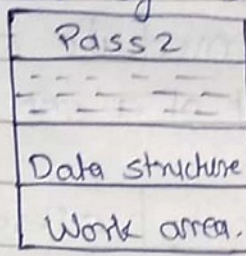 Pass 2
Data structure
Work area.